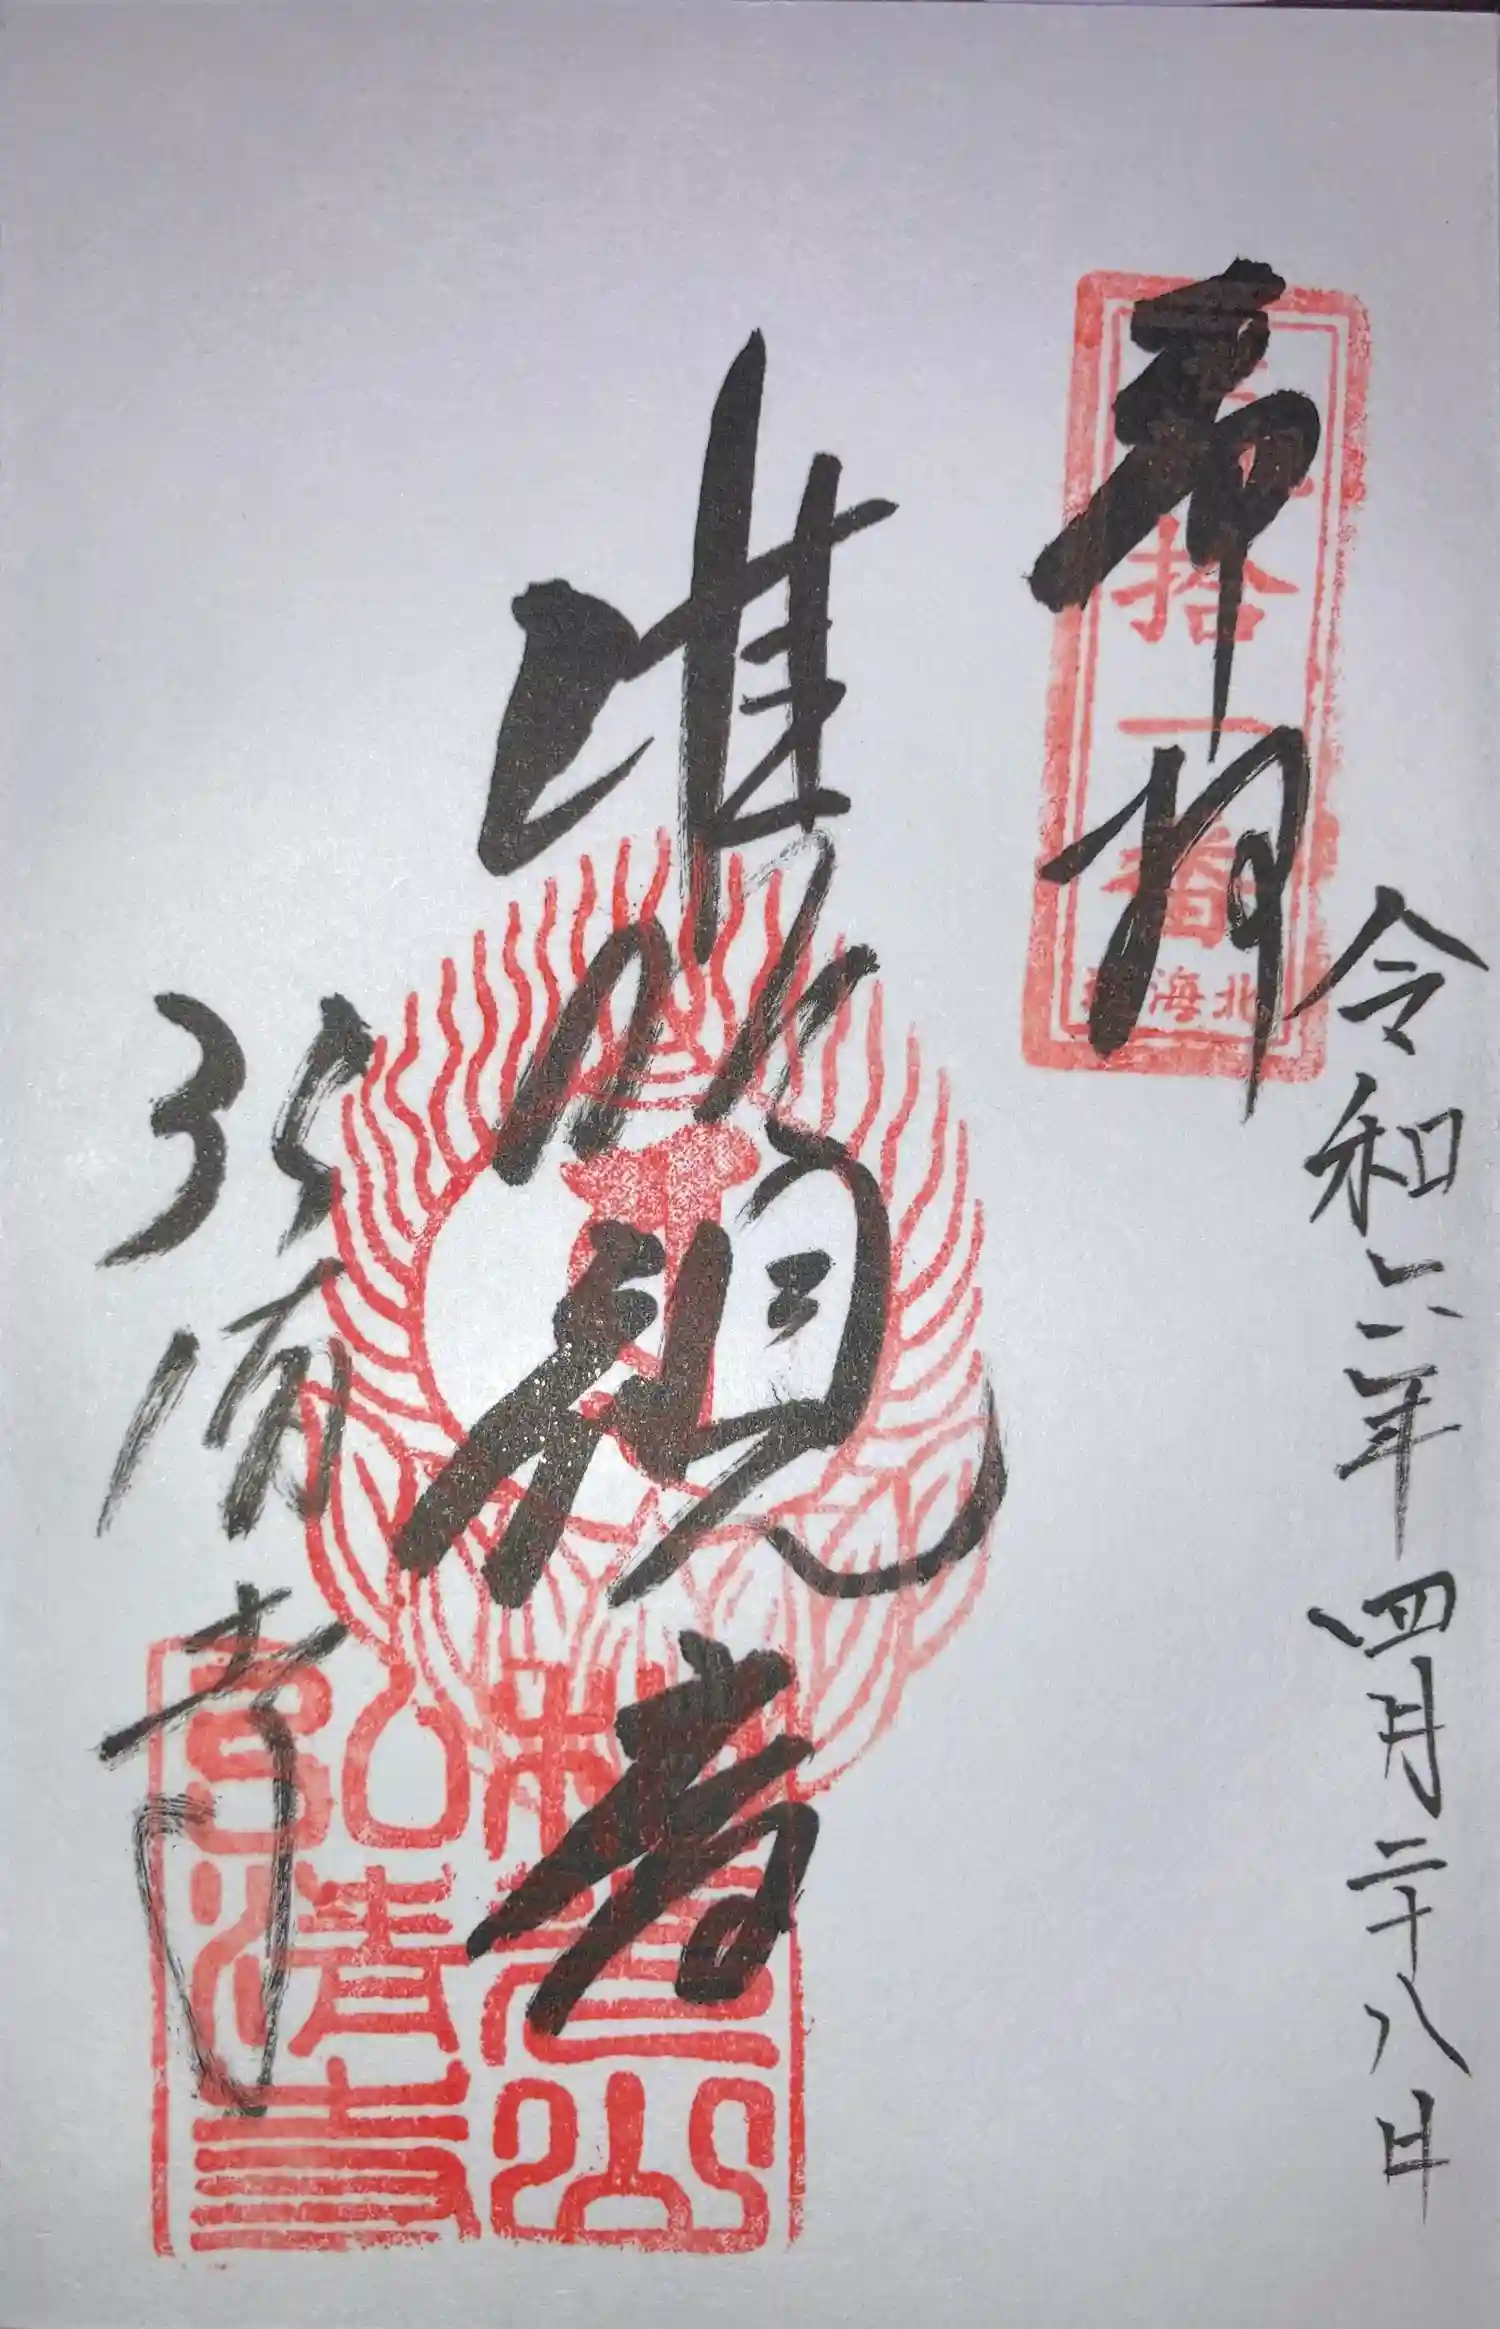 令和六年四月二十八日
奉拝
拾一番
北海道
准胝観音
弘清寺
弘清寺